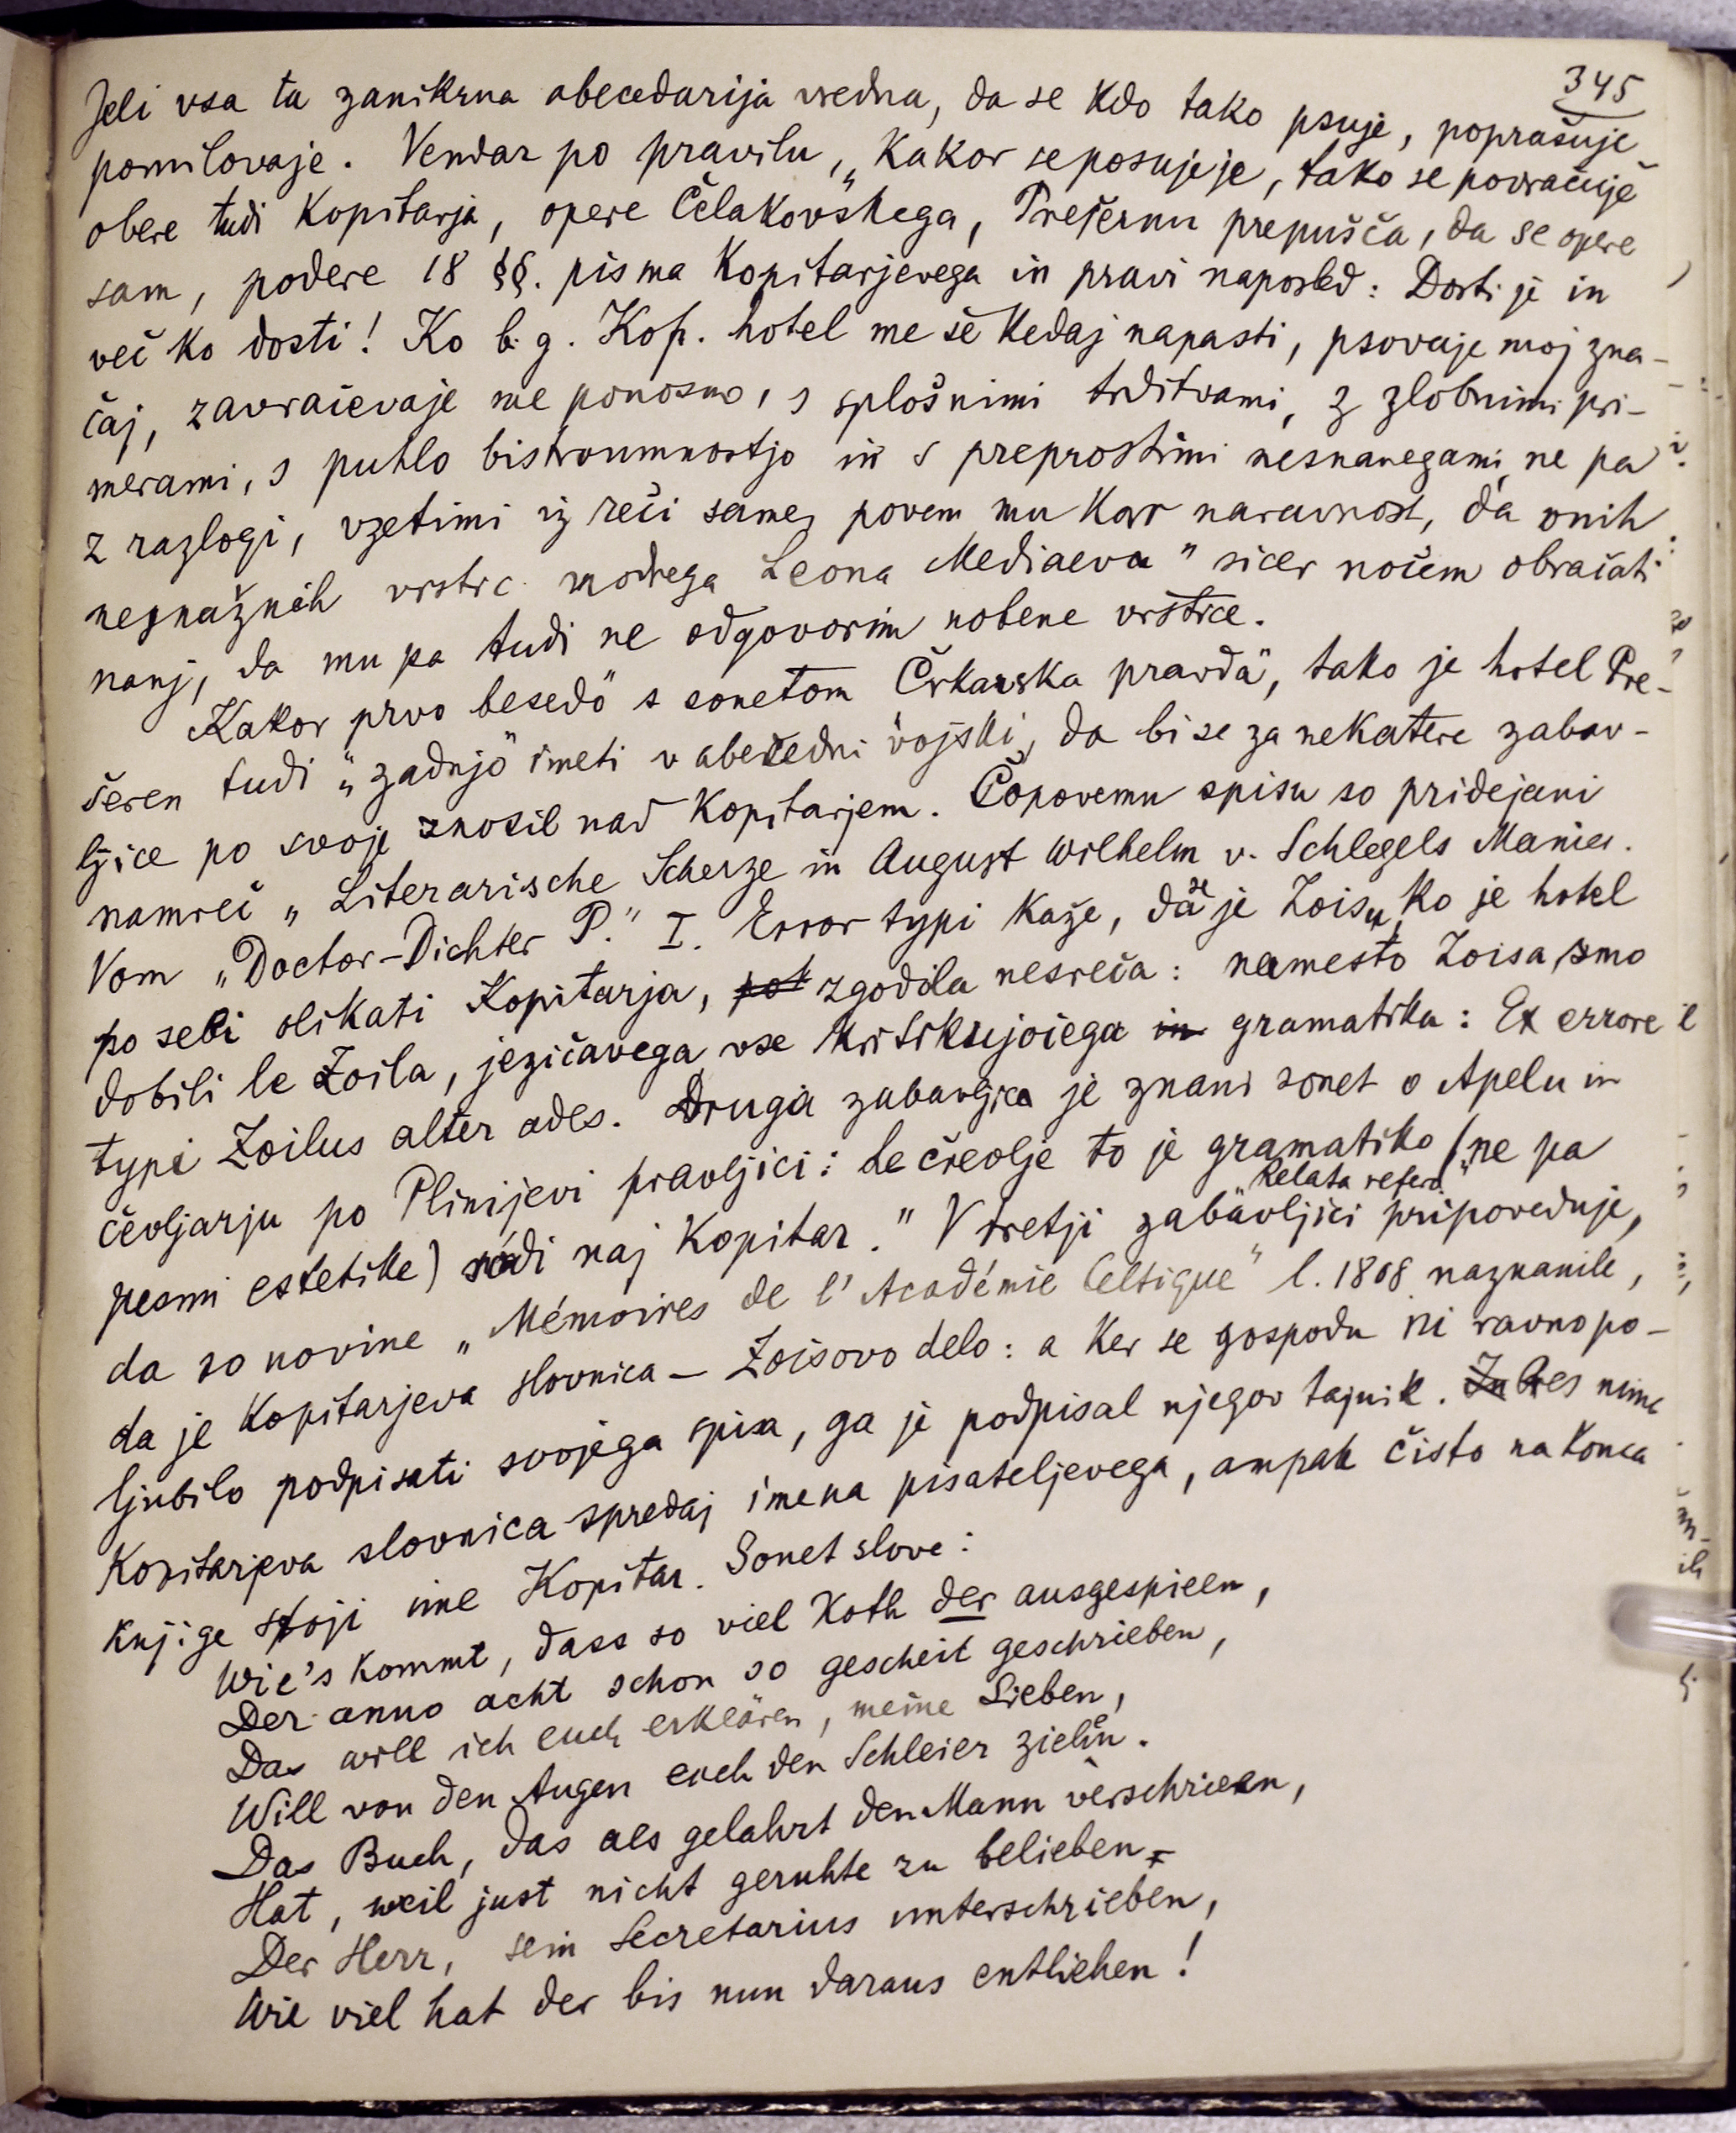 345
Jeli vsa ta zanikrna abecedarija vredna, da se kdo tako psuje, poprašuje
pomilovaje. Vendar po pravilu, „Kakor se posujeje, tako se povračuje"
obere tudi Kopitarja, opere Čelakovskega, Prešernu prepušča, da se opere
sam, podere 18 §§. pisma Kopitarjevega in pravi naposled: Dosti je in
več ko dosti! Ko b. g. Kop. hotel me še kedaj napasti, psovaje moj zna-
čaj, zavračevaje me ponosno, s splošnimi trditvami, z zlobnimi pri-
merami, s puhlo bistroumnostjo in s preprostimi nesnanegami, ne pa
z razlogi, vzetimi iz reči same, povem mu kar naravnost, da onih
nesnažnih vrstic modrega Leona Mediaeva" sicer nočem obračati
nanj, da mu pa tudi ne odgovorim nobene vrstice.
Kakor prvo besedo" s sonetom Črkarska pravda", tako je hotel Pre-
šeren tudi „zadnjo" imeti v abecedni vojski, da bi se za nekatere zabav-
ljice po svoje znosil nad Kopitarjem. Čopovemu spisu so pridejani
namreč „Literarische Scherze in August Wilhelm v. Schlegels Manier.
Vom „Doctor-Dichter P." I. Error typi kaže, da se je Zoisu, ko je hotel
po sebi olikati Kopitarja, pot zgodila nesreča: namesto Zoisa smo
dobili le Zoila, jezičavega vse kritikujočega in gramatika: Ex errore
typi Zoilus alter ades. Druga zabavljica je znani sonet o Apelu in
čevljarju po Plinijevi pravljici: Le čreolje to je gramatiko (ne pa
pesmi estetike) sodi naj Kopitar." V tretji zabavljici „Relata refero" pripoveduje,
da so novine „Mémoires de l'Académie Celtique" l. 1808 naznanile,
da je Kopitarjeva slovnica – Zoisovo delo: a ker se gospodu ni ravno po-
ljubilo podpisati svojega spisa, ga je podpisal njegov tajnik. Za Res nima
Kopitarjeva slovnica spredaj imena pisateljevega, ampak čisto na konca
knjige stoji ime Kopitar. Sonet slove:
Wie's kommt, dass so viel Koth der ausgespieen,
Der anno acht schon so gescheit geschrieben,
Das will ich euch erklären, meine Lieben,
Will von den Augen euch den Schleier ziehen.
Das Buch, das als gelahrt den Mann verschrieen,
Hat, weil just nicht geruhte zu belieben
Der Herr, sein Secretarius unterschrieben,
Wie viel hat der bis nun daraus entliehen!